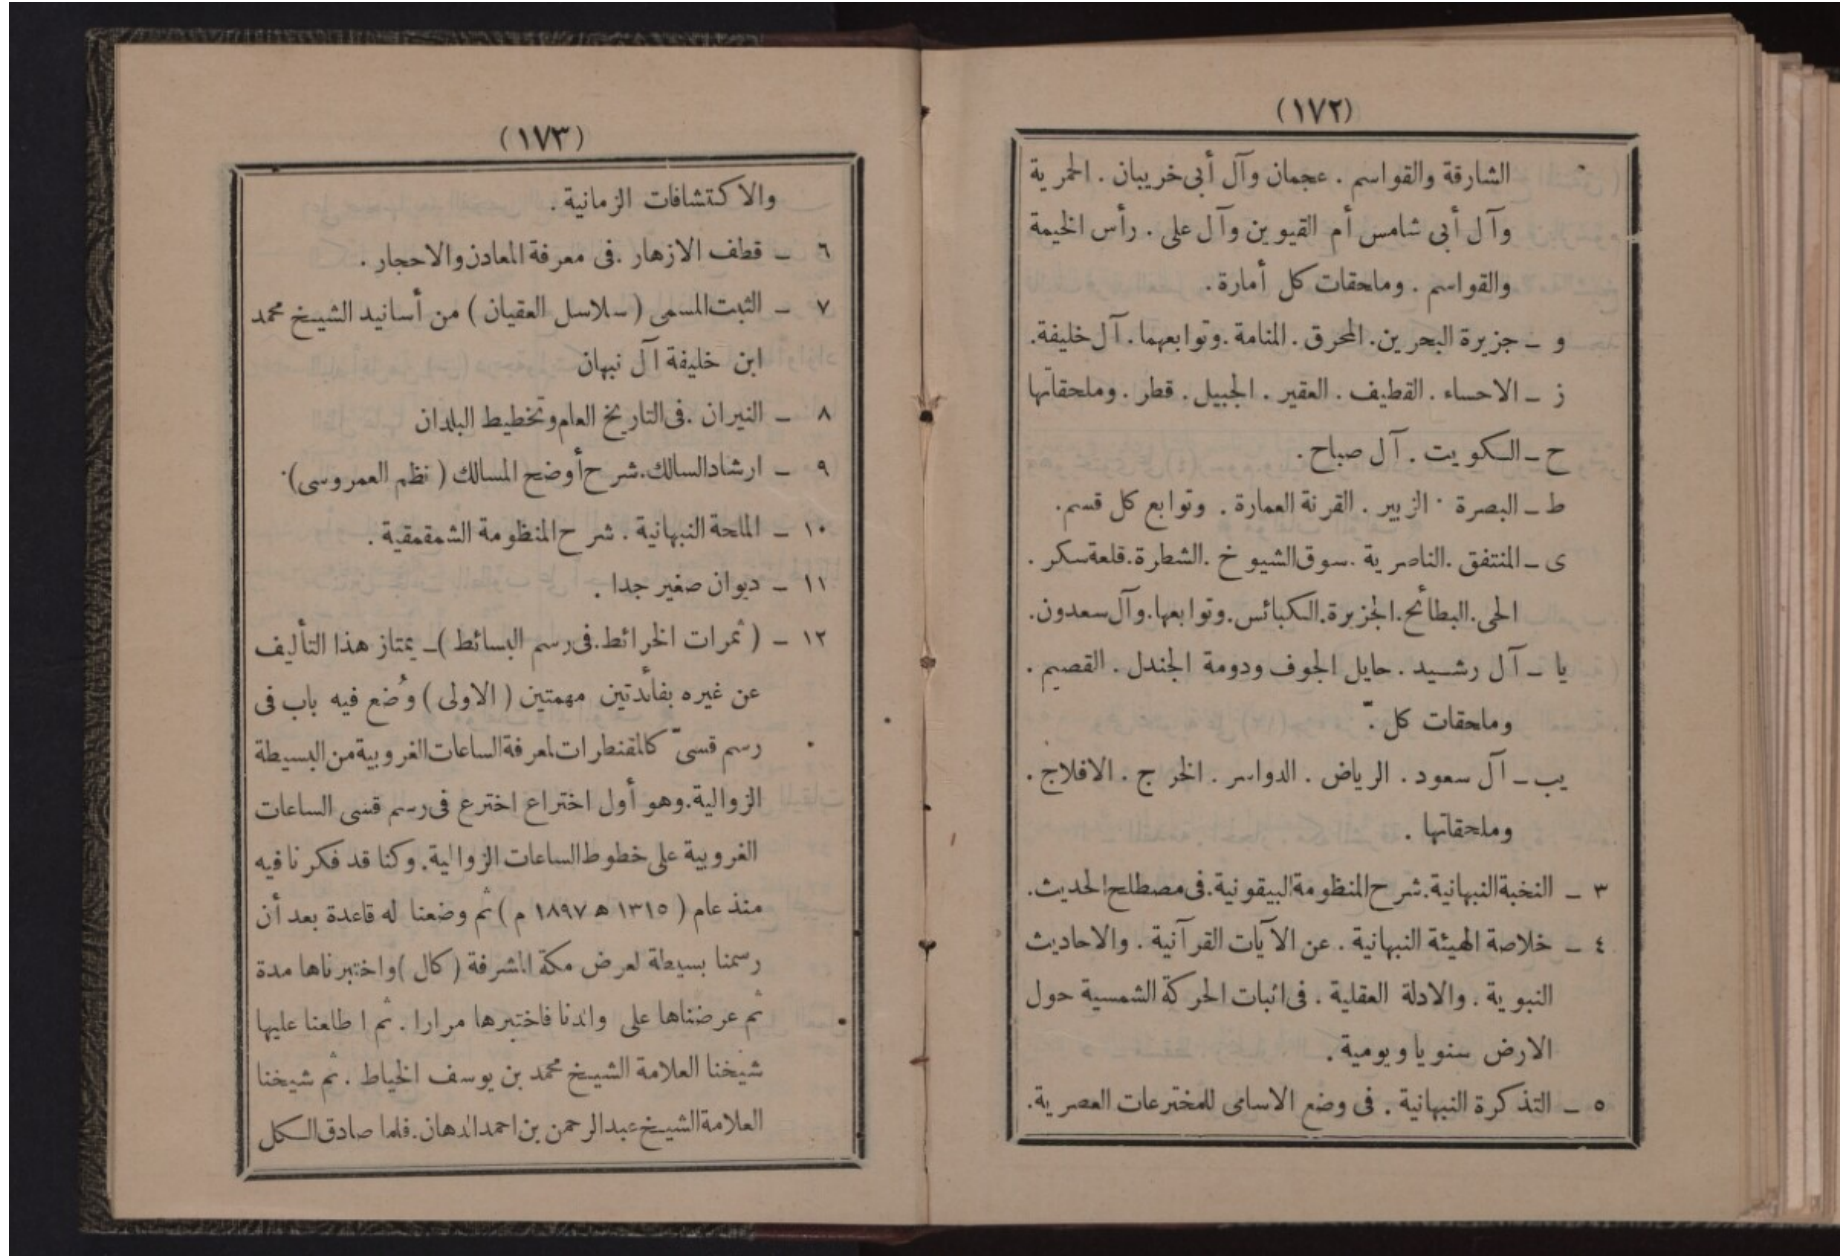 (١٧٢)
الشارقة والقواسم . عجمان وآل أبى خريبان . الحمرية
وآل أبى شامس أم القيوين وآل على . رأس الخيمة
والقواسم . وملحقات كل أمارة .
و ــ جزيرة البحرين. المحرق . المنامة .وتوابعهما. آل خليفة.
ز ــ الاحساء . القطيف . العقير . الجبيل . قطر . وملحقاتها
ح ــ الكويت . آل صباح .
ط ــ البصرة . الزبير . القرنة العمارة . وتوابع كل قسم .
ى ــ المنتفق .الناصرية .سوق الشيوخ .الشطرة.قلعة سكر .
الحى.البطائح.الجزيرة.الكبائس.وتوابعها.وآل سعدون.
يا ــ آل رشيد . حايل الجوف ودومة الجندل . القصيم .
وملحقات كل .
يب ــ آل سعود . الرياض . الدواسر . الخرج . الافلاج .
وملحقاتها .
٣ ــ النخبة النبهانية.شرح المنظومة البيقونية.فى مصطلح الحديث.
٤ ــ خلاصة الهيئة النبهانية . عن الآيات القرآنية . والاحاديث
النبوية . والادلة العقلية . فى اثبات الحركة الشمسية حول
الارض سنويا ويومية .
٥ ــ التذكرة النبهانية . فى وضع الاسامى للمخترعات العصرية.
(١٧٣)
والاكتشافات الزمانية .
٦ ــ قطف الازهار .فى معرفة المعادن والاحجار .
٧ ــ الثبت المسمى ( سلاسل العقيان ) من أسانيد الشيخ محمد
ابن خليفة آل نبهان
٨ ــ النيران .فى التاريخ العام وتخطيط البلدان
٩ ــ ارشاد السالك.شرح أوضح المسالك ( نظم العمروسى).
١٠ ــ الملحة النبهانية . شرح المنظومة الشمقمقية .
١١ ــ ديوان صغير جدا .
١٢ ــ ( ثمرات الخرائط.فى رسم البسائط )ــ يمتاز هذا التأليف
عن غيره بفائدتين مهمتين ( الاولى ) وُضع فيه باب فى
رسم قسىّ كالمقنطرات لمعرفة الساعات الغروبية من البسيطة
الزوالية.وهو أول اختراع اخترع فى رسم قسى الساعات
الغروبية على خطوط الساعات الزوالية. وكنا قد فكرنا فيه
منذ عام ( ١٣١٥ ه ١٨٩٧ م ) ثم وضعنا له قاعدة بعد أن
رسمنا بسيطة لعرض مكة المشرفة ( كال )واختبرناها مدة
ثم عرضناها على والدنا فاختبرها مرارا . ثم اطلعنا عليها
شيخنا العلامة الشيخ محمد بن يوسف الخياط . ثم شيخنا
العلامة الشيخ عبدالرحمن بن احمد الدهان. فلما صادق الكل